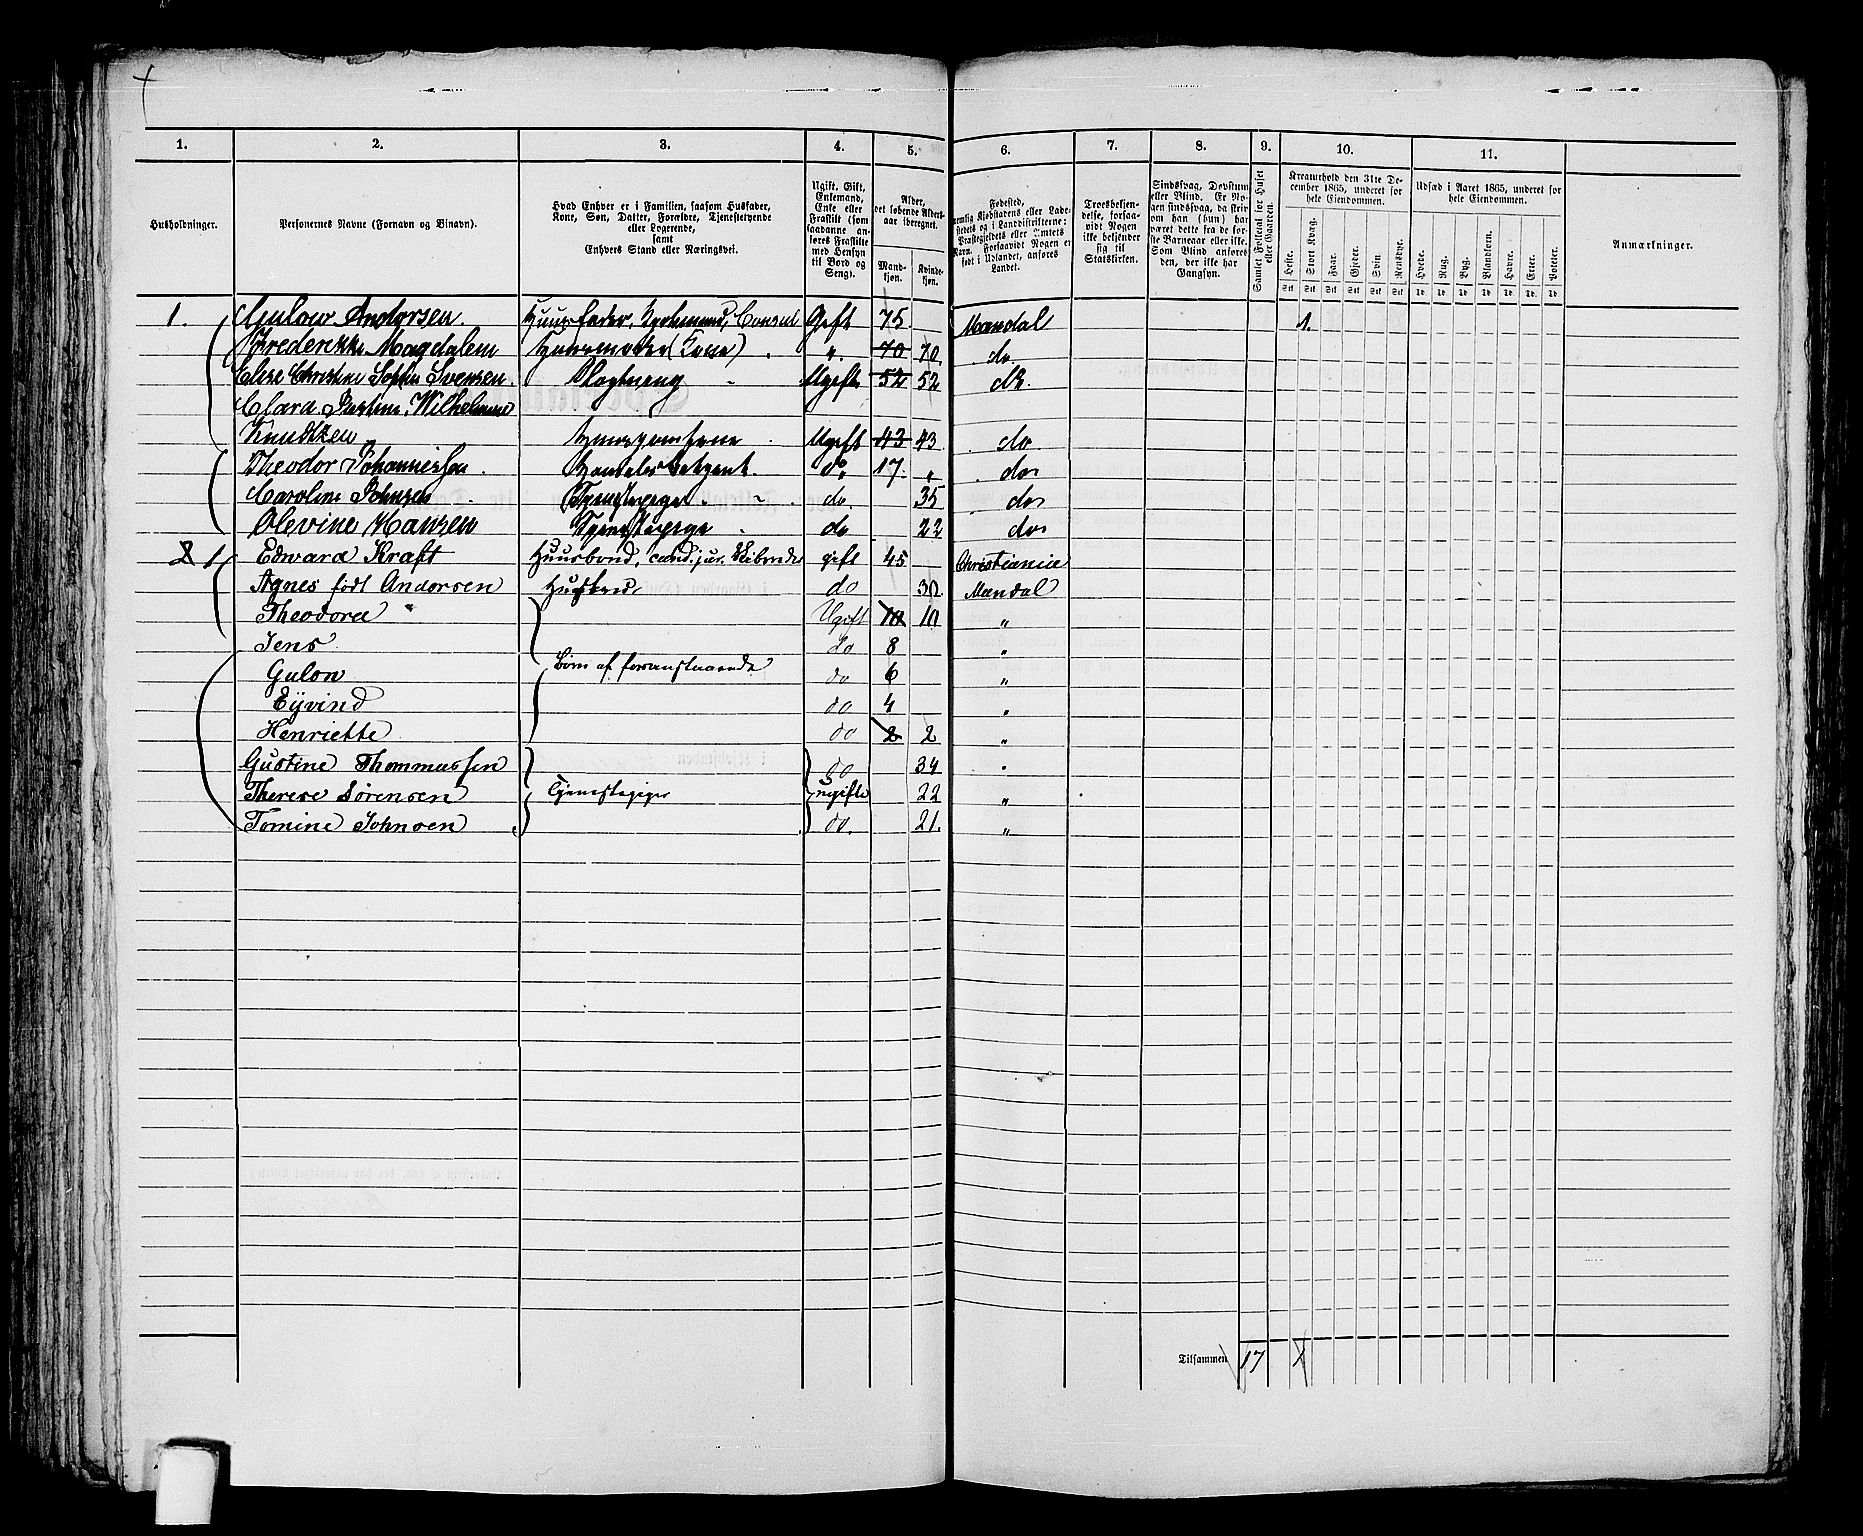 1. 2. 3. 4. 5. 6. 7. 8. 9. 10. 11.
Husholdninger.
Personernes Navne (Fornavn og Binavn).
Hvad Enhver er i Familien, saasom Husfader,
Kone, Søn, Datter, Forældre, Tjenestetyende
eller Logerende,
samt
Enhvers Stand eller Næringsvei.
Ugift, Gift,
Enkemand,
Enke eller
Fraskilt (som
saadanne an-
føres Fraskilte
med Hensyn
til Bord og
Seng).
Alder,
det løbende Alders-
aar iberegnet.
Mand-
kjøn.
Kvinde-
kjøn.
Fødested,
nemlig Kjøbstadens eller Lade-
stedets og i Landdistrikterne:
Præstegjeldets eller Amtets
Navn. Forsaavidt Nogen er
født i Udlandet, anføres
Landet.
Troesbekjen-
delse, forsaa-
vidt Nogen
ikke bekjender
sig til
Statskirken.
Sindssvag, Døvstum
eller Blind. Er No-
gen sindssvag, da skriv
om han (hun) har
været dette fra de før-
ste Barneaar eller ikke.
Som Blind anføres
den, der ikke har
Gangsyn.
Samlet Folketal for Huset
eller Gaarden.
Kreaturhold den 31te De-
cember 1865, underet for
hele Eiendommen.
Heste. Stort Kvæg. Faar. Gjeder. Svin. Rensdyr.
Stk Stk Stk Stk Stk Stk
Udsæd i Aaret 1865, underet for
hele Eiendommen.
Hvede. Rug. Byg. Blandkorn. Havre. Erter. Poteter.
Td Td Td Td Td Td Td
Anmærkninger.
1. Gulow Andorsen. Huusfader, Kjøbmand, Consul Gift 75 Mandal 1.
Frederikke Magdalene Huusmoder (Kone) " 70 70 do.
Elise Christine Sophie Svensen. Ugift 52 52 do.
Clara Justine Wilhelmine
Knudtzen Huusjomfrue Ugift 43 43 do
Theodor Johannessen Handelsbetjent. do 17. " do
Caroline Johnsen Tjenestepige do. 35 do
Olevine Hansen Tjenestepige do 22 do
2 1 Edward Kraft Huusbond, cand. jur. gift 45 Christiania
Agnes født Andorsen Hustru do 30 Mandal
Theodora Ugift 10 10 "
Jens do 8 "
Børn af foranstaaende
Gulow do 6 "
Eyvind do 4 "
Henriette do 2 2 "
Gustine Thommassen do 34 "
Therese Sørensen Tjenestepiger ugifte 22 "
Tomine Johnsen do. 21. "
Tilsammen 17 1